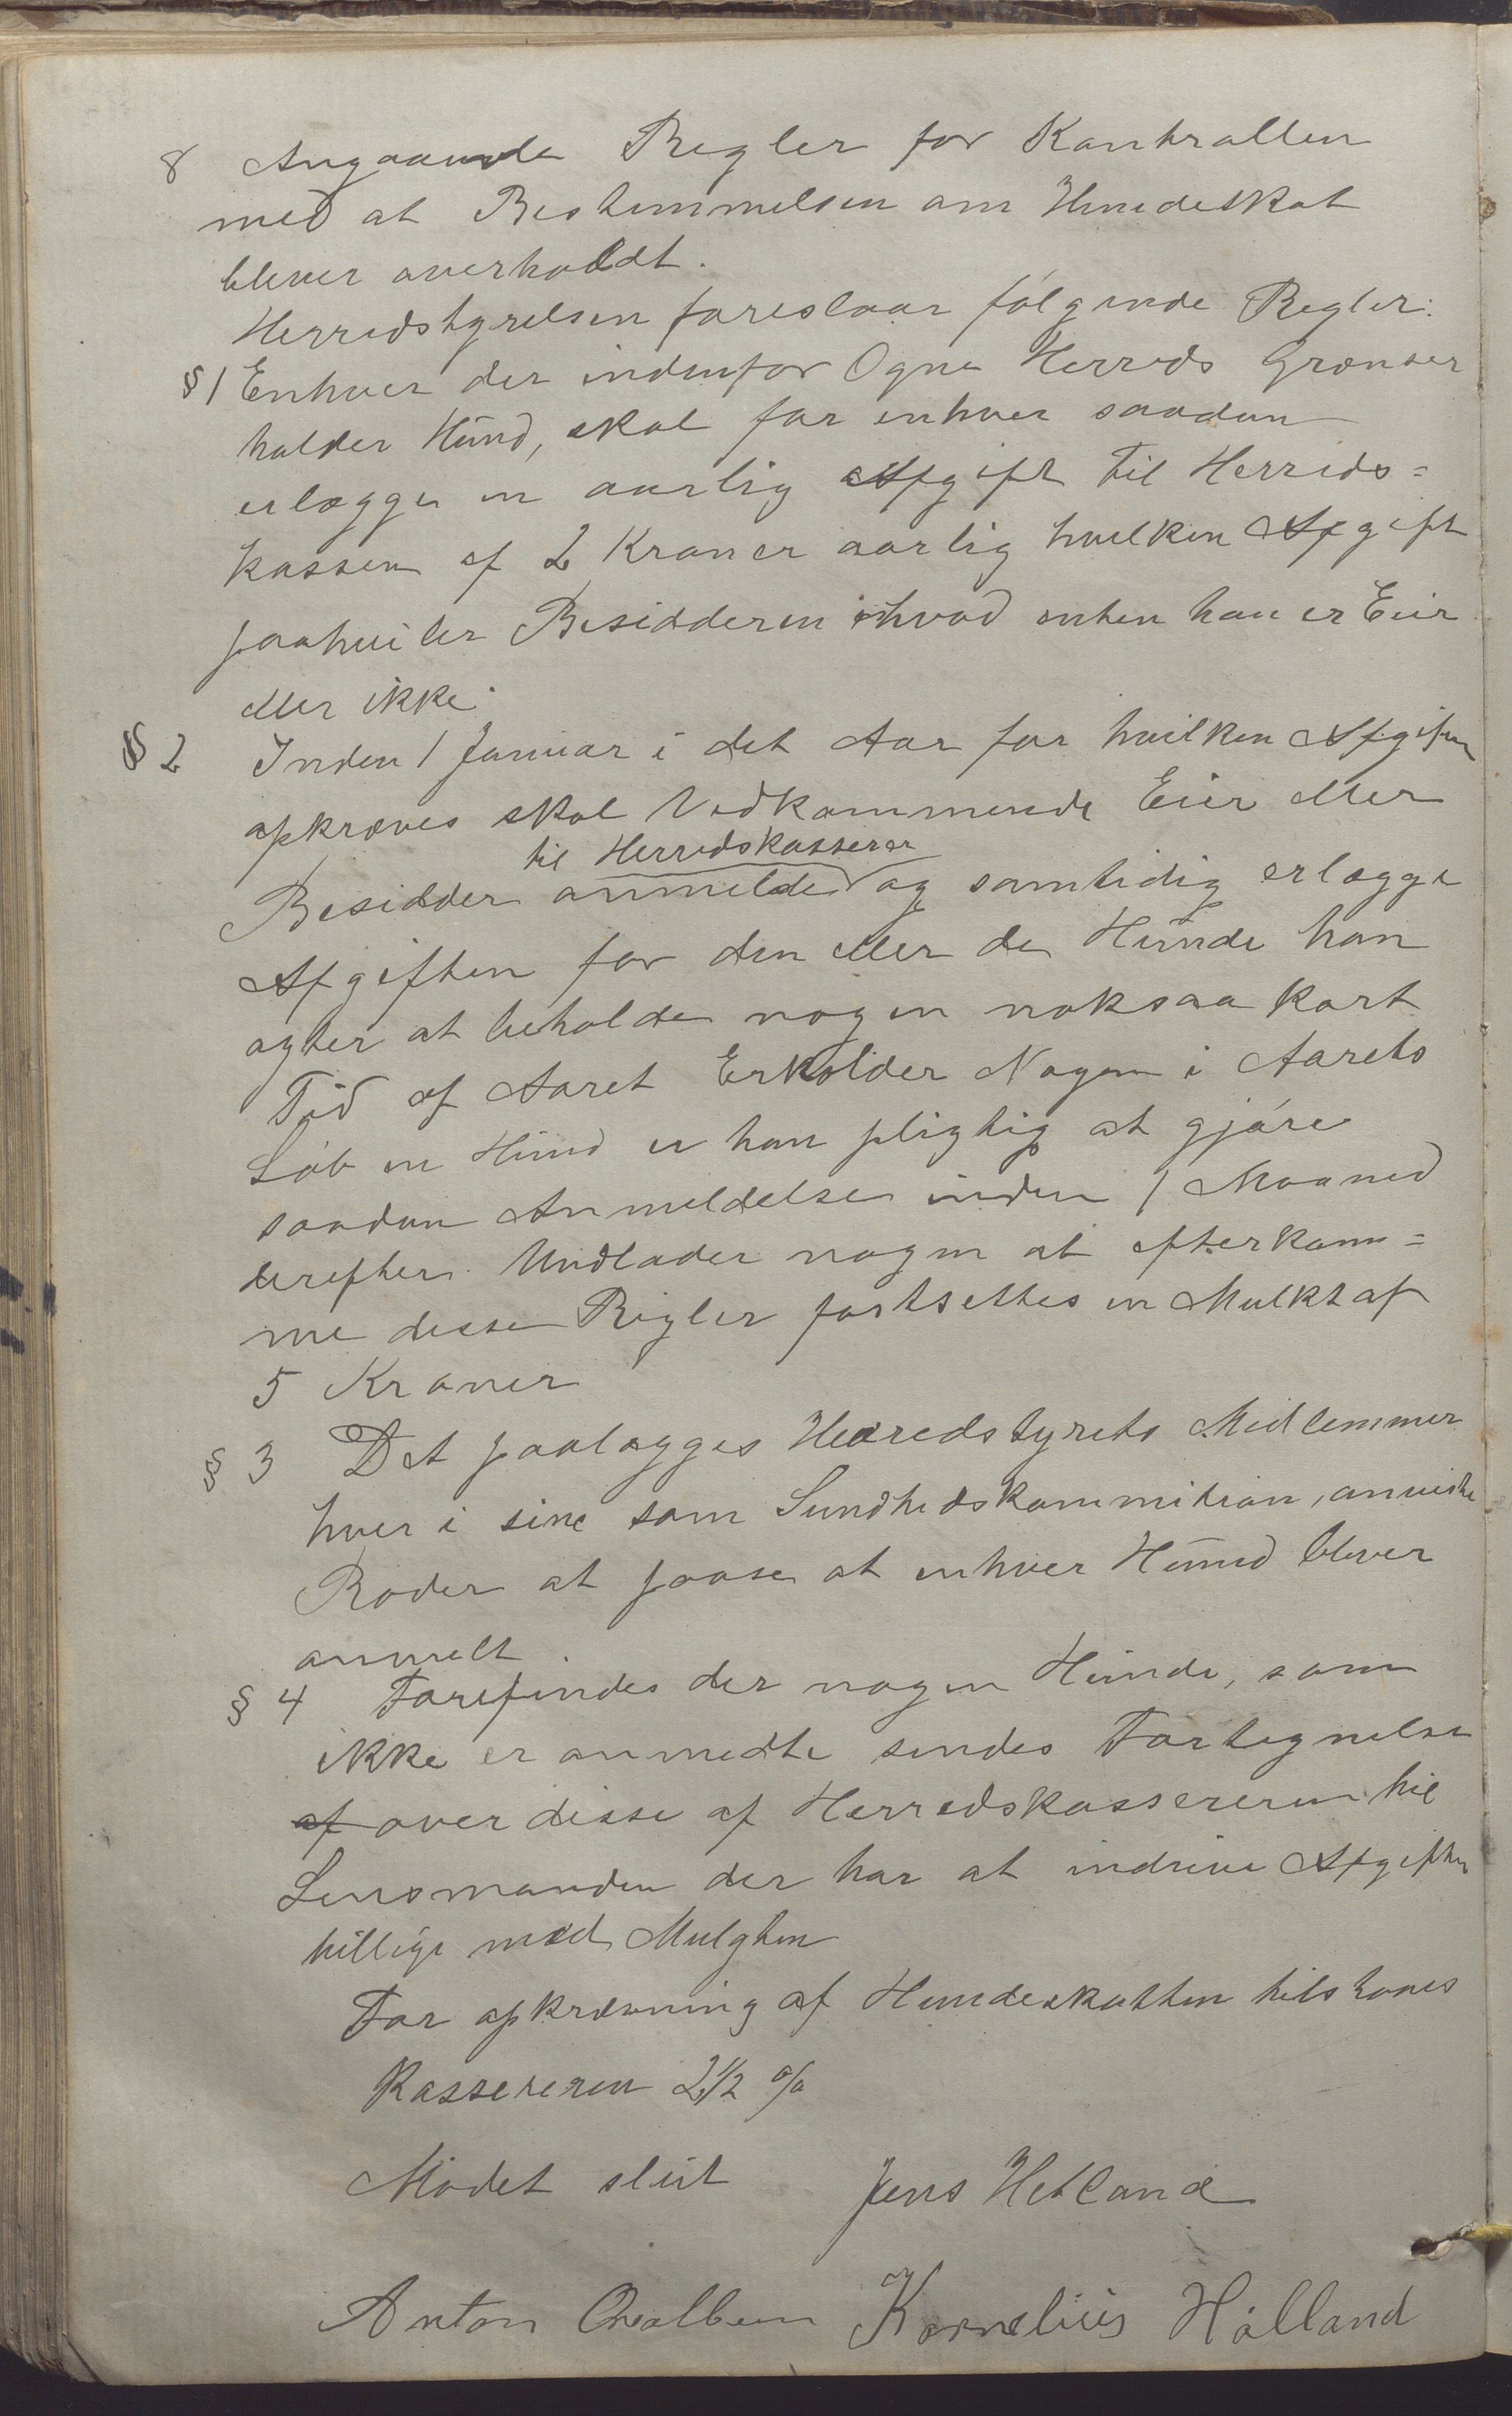 8 Angaaende Regler for Kontrollen
med at Bestemmelsen om Hundeskat
bliver overholdt.
Herredstyrelsen foreslaar følgende Regler:
§ 1 Enhver der indenfor Ogne Herreds Grænser
holder Hund, skal for enhver saadan
erlægge en aarlig Afgift til Herreds=
kassen af 2 Kroner aarlig hvilken Afgift
paahviler Besidderen ihvad enten han er Eier
eller ikke.
§ 2 Inden 1 Januar i det Aar for hvilken Afgiften
opkræves skal Vedkommende Eier eller
til Herredskasserer
Besidder anmelde og samtidig erlægge
Afgiften for den eller de Hunde han
agter at beholde nogen noksaa kort
Tid af Aaret Erholder Nogen i Aarets
Løb en Hund er han pligtig at gjøre
saadan Anmeldelse inden 1 Maaned
derefter. Undlader nogen at efterkom=
me disse Regler fastsettes en Mulkt af
5 Kroner
§ 3 Det paalægges Heredstyrets Medlemmer
hver i sine som Sundhedskommition, anviste
Roder at paase at enhver Hund bliver
anmelt.
§ 4 Forefindes der nogen Hunde, som
ikke er anmedte sendes Fortegnelse
af over disse af Herredskassereren til
Lensmanden der har at indrive Afgiften
tillige med Mulgten
For opkrævning af Hundeskatten tilstaaes
Kassereren 2 1/2 %
Mødet slut Jens Hetland
Anton Qvalbein Kornelius Hølland